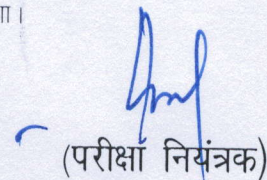 (परीक्षा नियंत्रक)